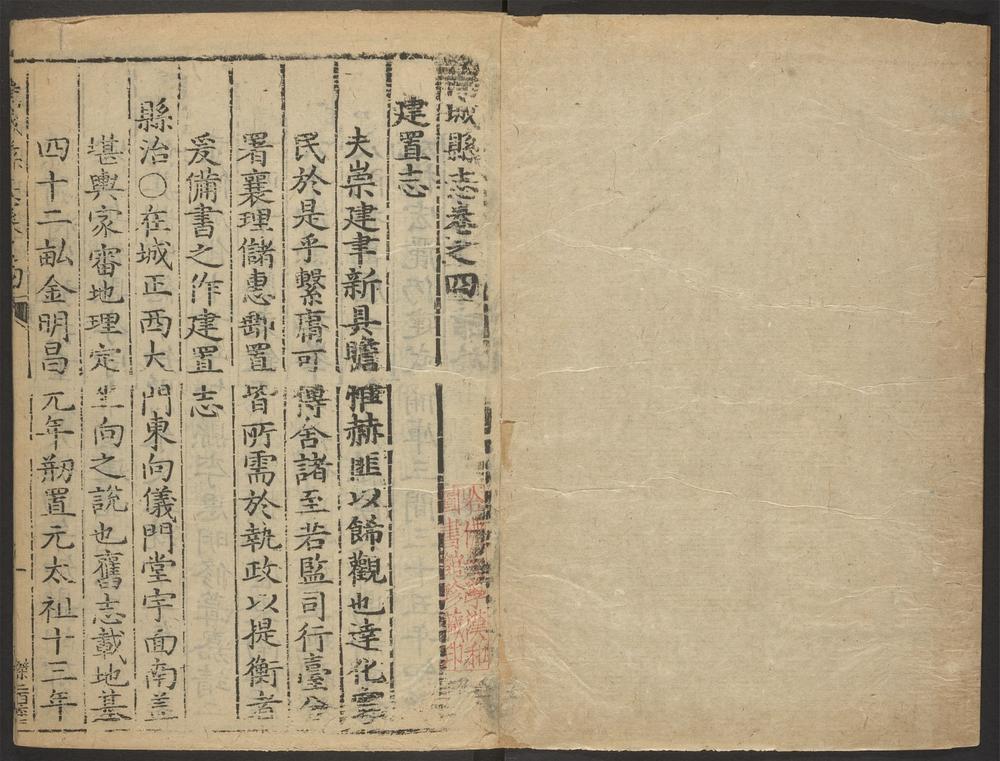 城縣志卷之四
建置志
夫崇建聿新具瞻惟赫匪以餙觀也達化宣
民於是乎繫庸可傳舍諸至若監司行臺公
署襄理儲惠郵置皆所需於執政以提衡者
爰備書之作建置志
縣治〇在城正西大門東向儀門堂宇面南蓋
堪輿家審地理定坐向之說也舊志載地基
四十二畝金明昌元年剏置元太祖十三年
哈佛大學漢和
圖書館珍藏印